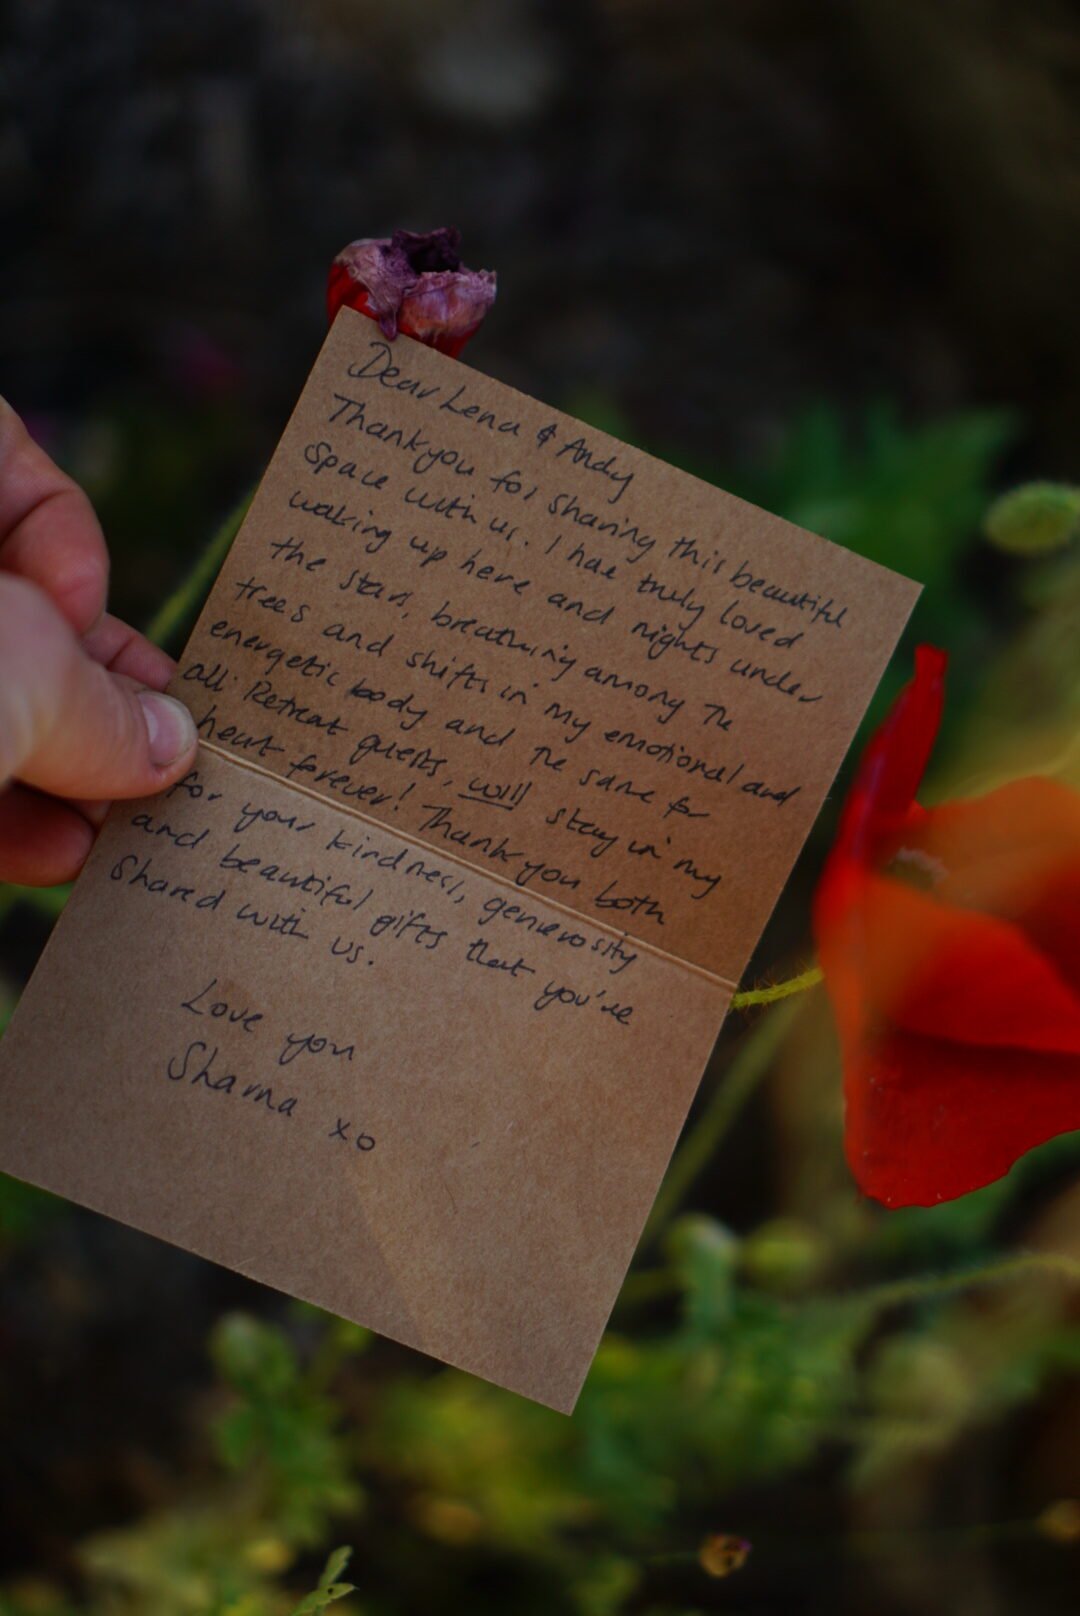 Dear Lena & Andy
Thankyou for sharing this beautiful
space with us. I have truly loved
waking up here and nights under
the stars, breathing among the
trees and shifts in my emotional and
energetic body and the same for
all. Retreat guests, will stay in my
heart forever! Thank you both
for your kindness, generosity
and beautiful gifts that you've
Shared with us.
Love you
Sharna xo